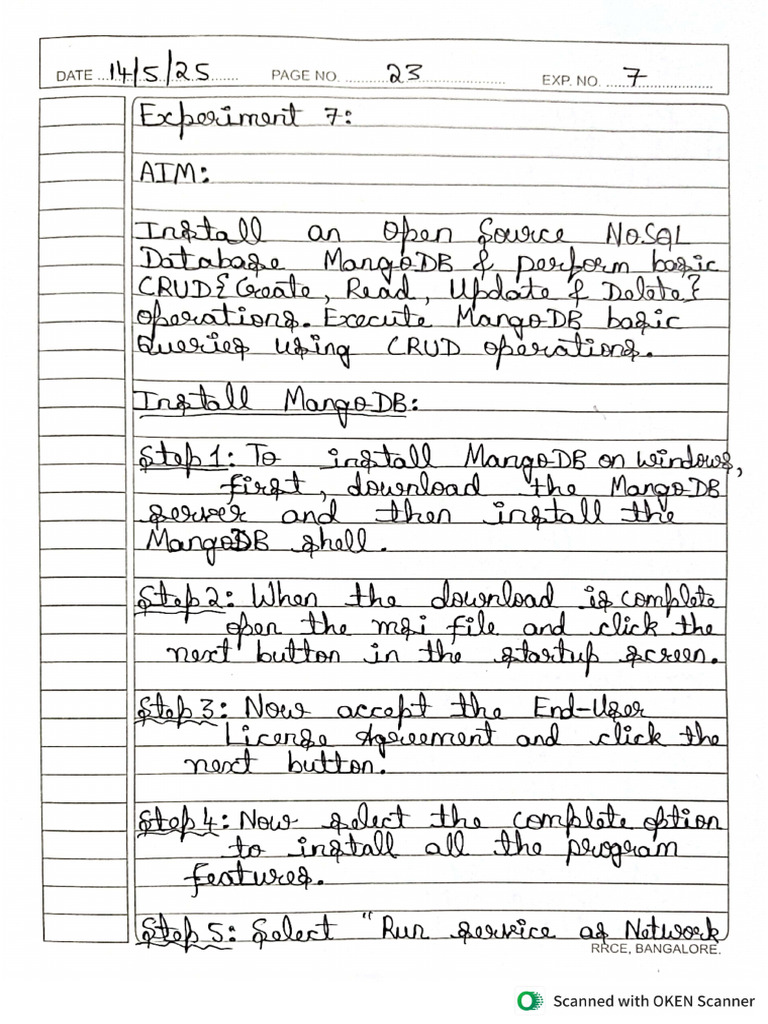 DATE 14/5/25 PAGE NO. 23 EXP. NO. 7
Experiment 7:
AIM:
Install an Open Source NoSQL
Database MangoDB & perform basic
CRUD{Create, Read, Update & Delete}
operations. Execute MangoDB basic
Queries using CRUD operations.
Install MangoDB:
Step 1: To install MangoDB on windows,
first, download the MangoDB
server and then install the
MangoDB shell.
Step 2: When the download is complete
open the msi file and click the
next button in the startup screen.
Step 3: Now accept the End-User
License Agreement and click the
next button.
Step 4: Now select the complete option
to install all the program
features.
Step 5: Select "Run service as Network
RRCE, BANGALORE.
Scanned with OKEN Scanner